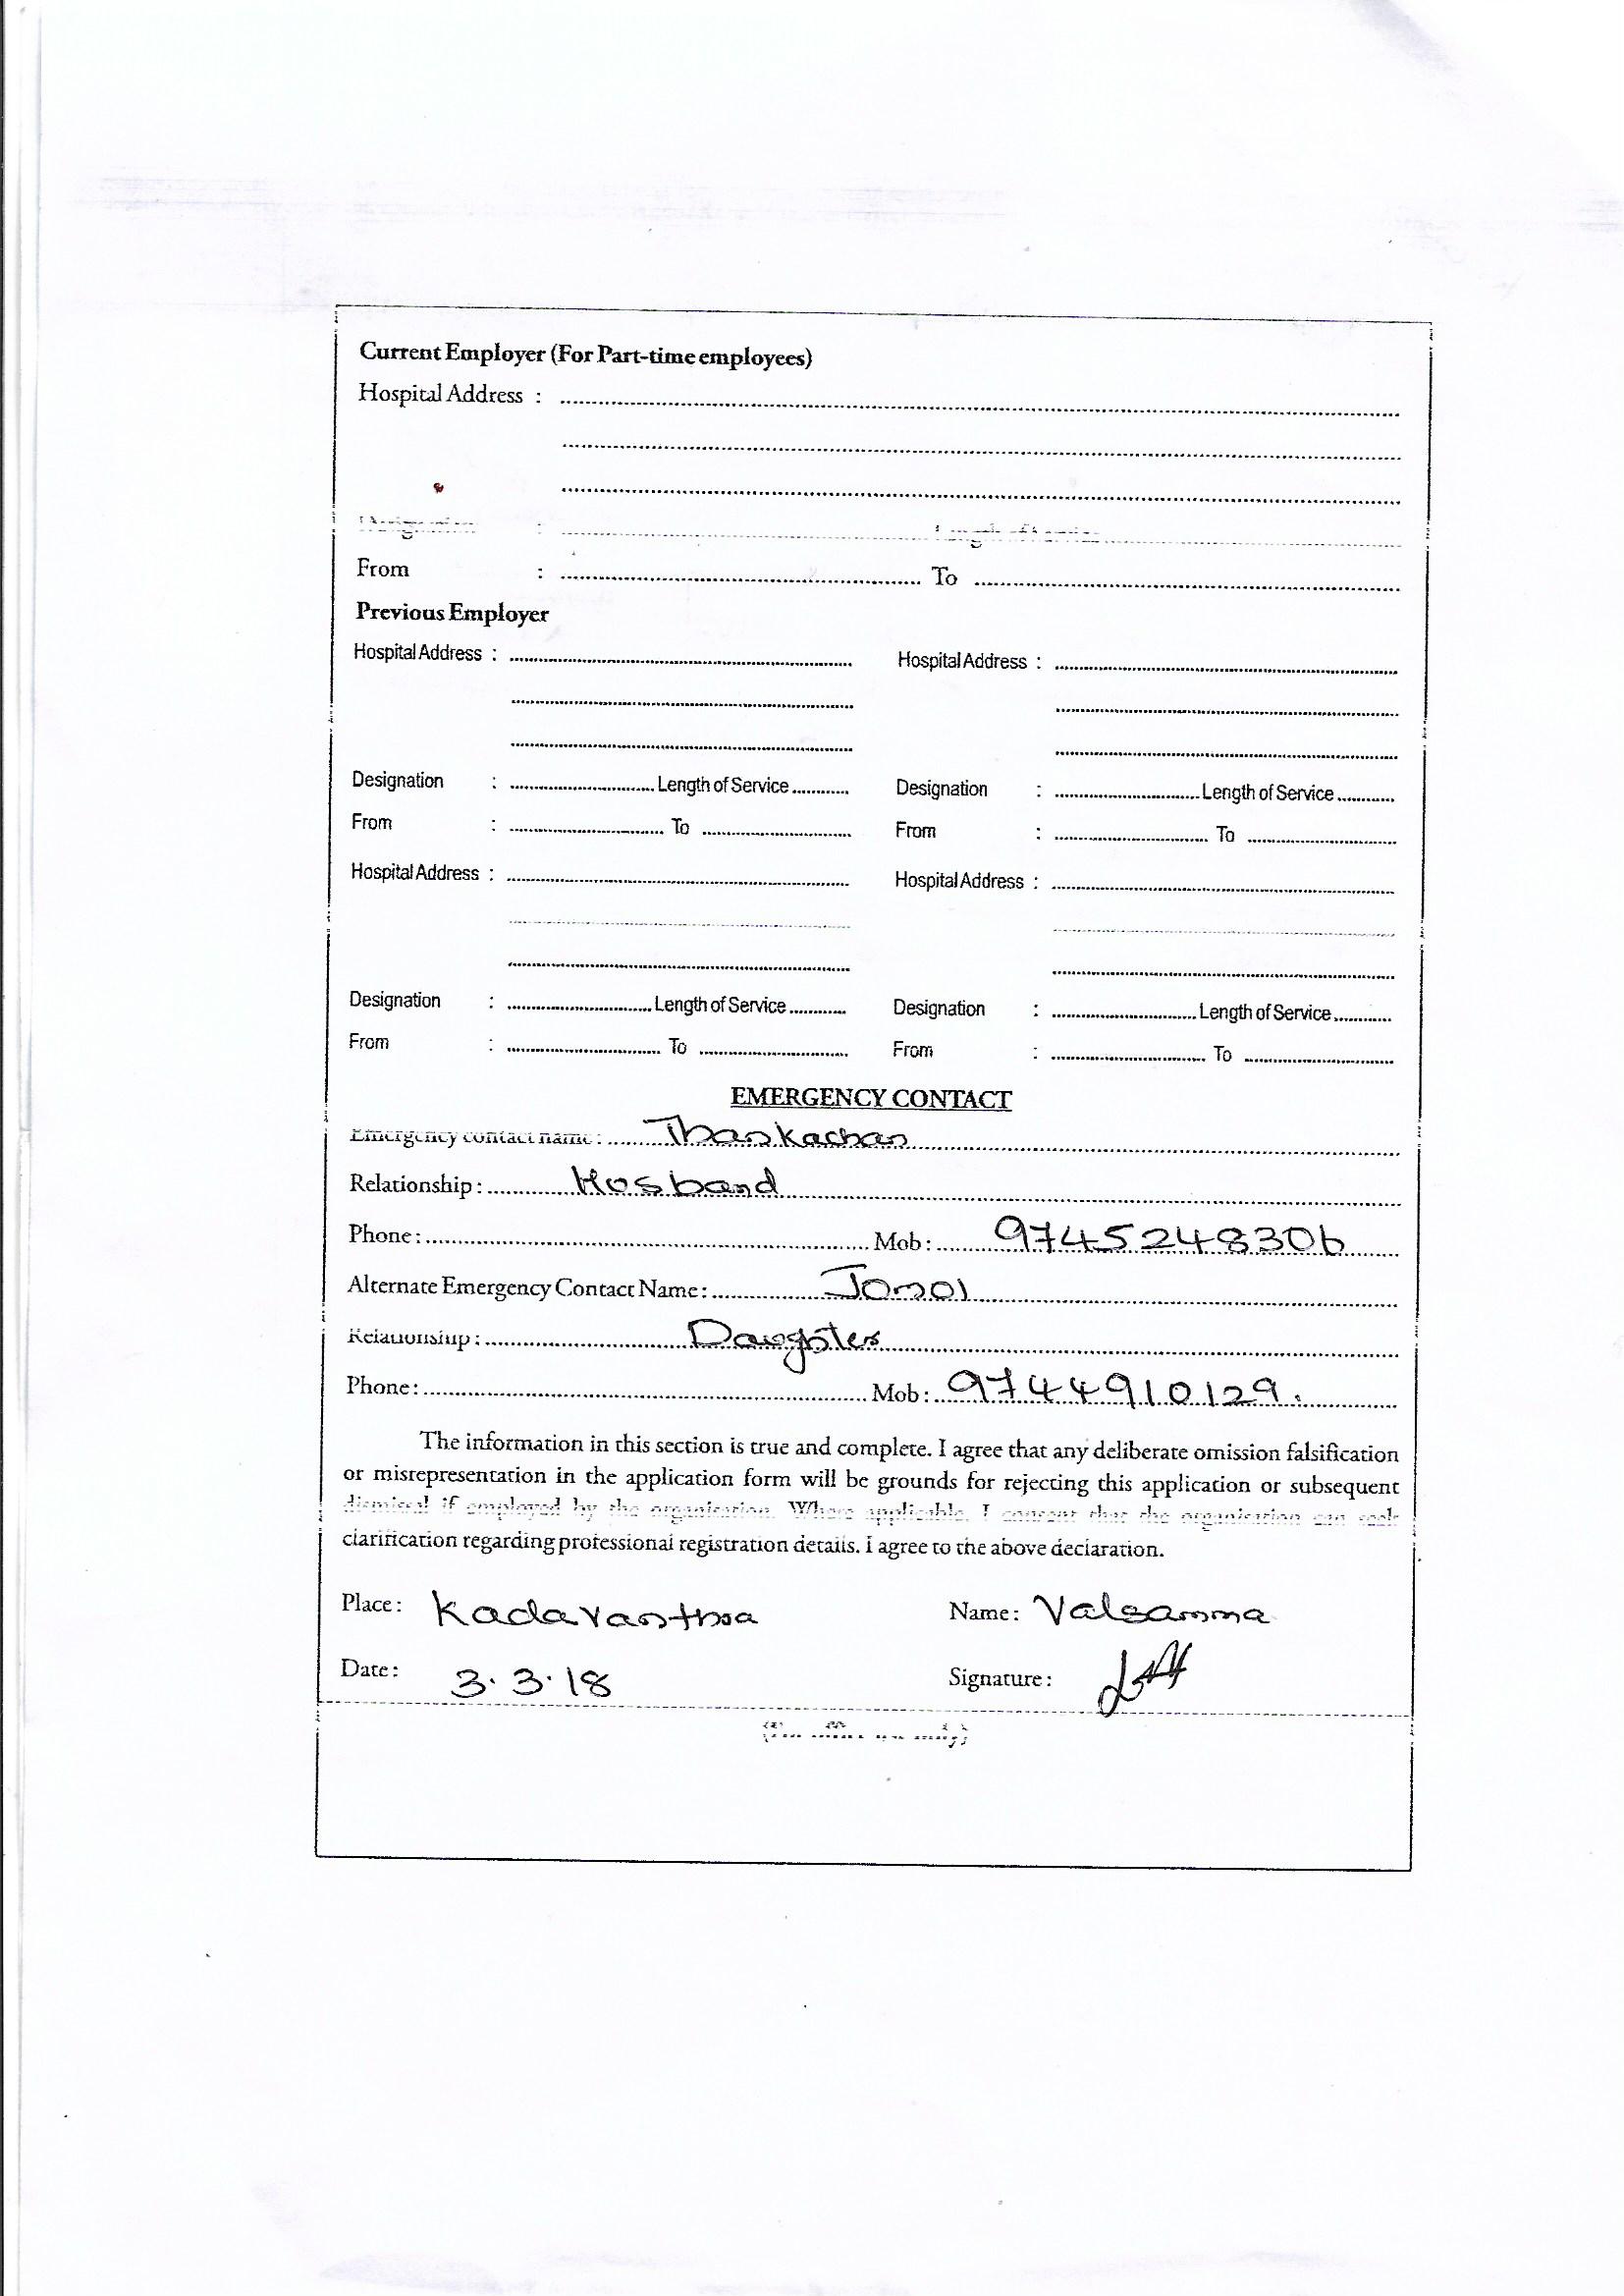 Current Employer (For Part-time employees)
Hospital Address : ........................
........................
........................
Designation : ........................ Length of Service ........................
From : ........................ To ........................
Previous Employer
Hospital Address : ........................ Hospital Address : ........................
........................ ........................
........................ ........................
Designation : ............ Length of Service ............ Designation : ............ Length of Service ............
From : ............ To ............ From : ............ To ............
Hospital Address : ........................ Hospital Address : ........................
........................ ........................
........................ ........................
Designation : ............ Length of Service ............ Designation : ............ Length of Service ............
From : ............ To ............ From : ............ To ............
EMERGENCY CONTACT
Emergency contact name : Thankachan
Relationship : Husband
Phone : ............ Mob : 9745248306
Alternate Emergency Contact Name : Jomol
Relationship : Daughter
Phone : ............ Mob : 9744910129.
The information in this section is true and complete. I agree that any deliberate omission falsification
or misrepresentation in the application form will be grounds for rejecting this application or subsequent
dismissal if employed by the organisation. Where applicable, I consent that the organisation can seek
clarification regarding professional registration details. I agree to the above declaration.
Place : Kadavanthra Name : Valsamma
Date : 3.3.18 Signature :
(For office use only)